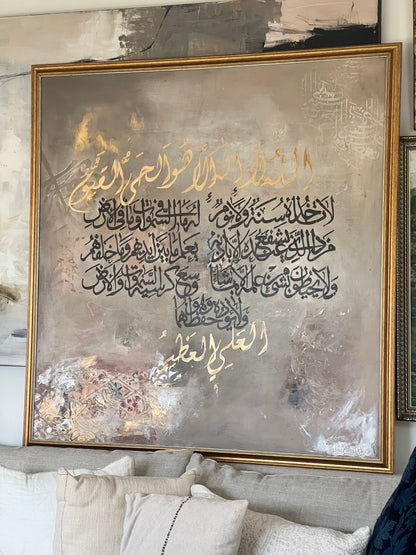 الله لا إله إلا هو الحي القيوم
لا تأخذه سنة ولا نوم له ما في السموات وما في الأرض
من ذا الذي يشفع عنده إلا بإذنه يعلم ما بين أيديهم وما خلفهم
ولا يحيطون بشيء من علمه إلا بما شاء وسع كرسيه السموات والأرض
ولا يؤده حفظهما وهو
العلي العظيم